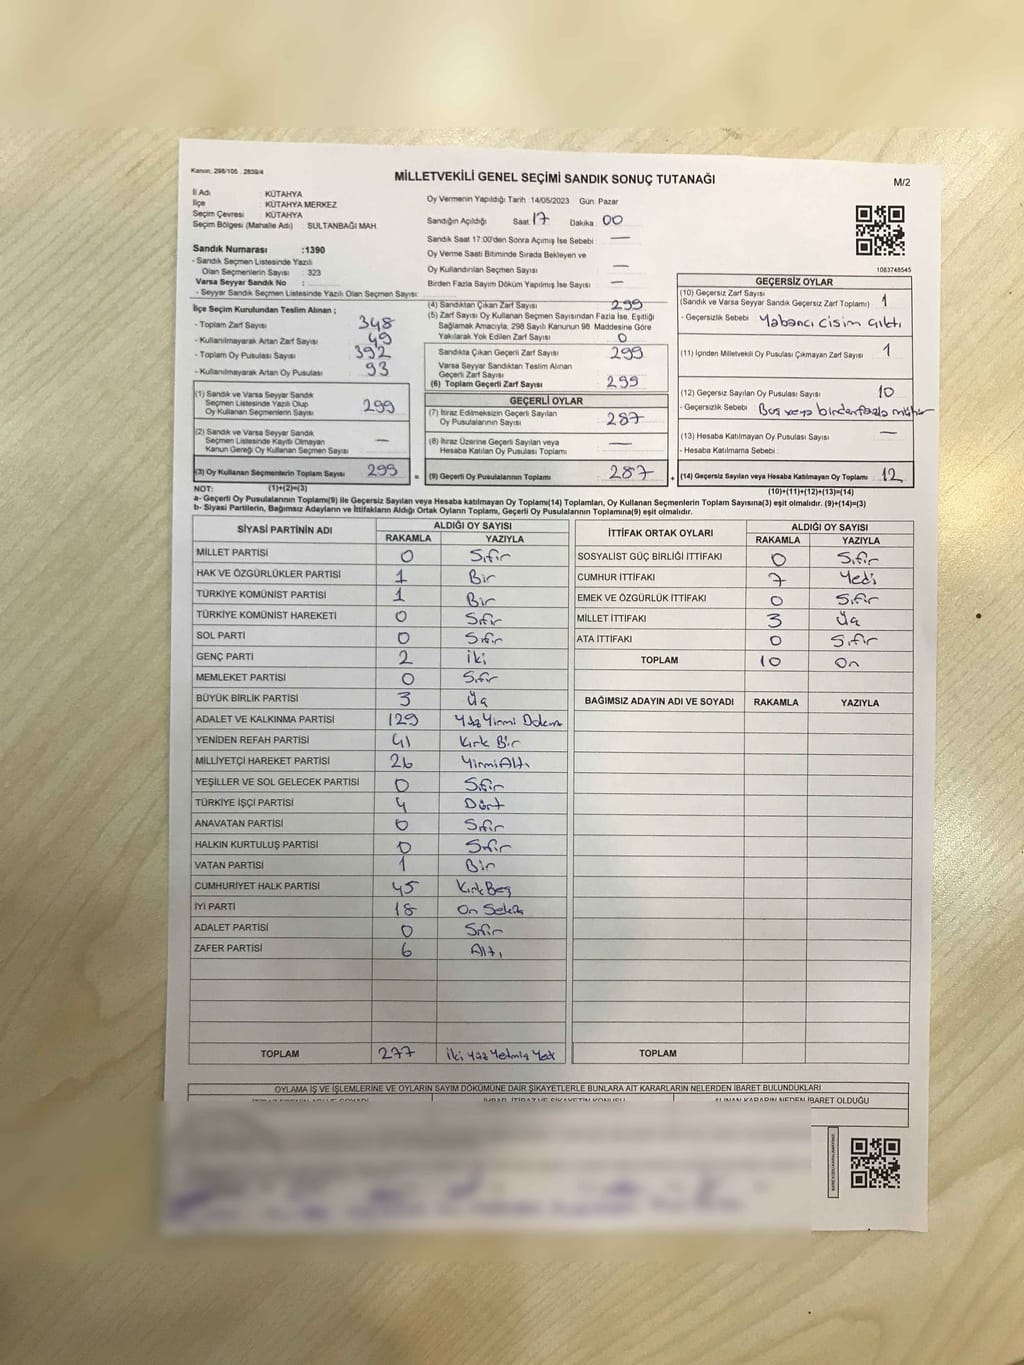 Kanun: 298/105 , 2839/4
MİLLETVEKİLİ GENEL SEÇİMİ SANDIK SONUÇ TUTANAĞI
M/2
İl Adı : KÜTAHYA
İlçe : KÜTAHYA MERKEZ
Seçim Çevresi : KÜTAHYA
Seçim Bölgesi (Mahalle Adı) : SULTANBAĞI MAH.
Oy Vermenin Yapıldığı Tarih : 14/05/2023 Gün: Pazar
Sandığın Açıldığı Saat 17 Dakika : 00
Sandık Saat 17:00'den Sonra Açımış İse Sebebi : —
Oy Verme Saati Bitiminde Sırada Bekleyen ve
Oy Kullandırılan Seçmen Sayısı : —
Birden Fazla Sayım Döküm Yapılmış İse Sayısı : —
1083748545
Sandık Numarası :1390
- Sandık Seçmen Listesinde Yazılı
Olan Seçmenlerin Sayısı : 323
Varsa Seyyar Sandık No :
- Seyyar Sandık Seçmen Listesinde Yazılı Olan Seçmen Sayısı:
İlçe Seçim Kurulundan Teslim Alınan ;
- Toplam Zarf Sayısı : 348
- Kullanılmayarak Artan Zarf Sayısı : 49
- Toplam Oy Pusulası Sayısı : 392
- Kullanılmayarak Artan Oy Pusulası : 93
(1) Sandık ve Varsa Seyyar Sandık
Seçmen Listesinde Yazılı Olup
Oy Kullanan Seçmenlerin Sayısı : 299
(2) Sandık ve Varsa Seyyar Sandık
Seçmen Listesinde Kayıtlı Olmayan
Kanun Gereği Oy Kullanan Seçmen Sayısı : —
(3) Oy Kullanan Seçmenlerin Toplam Sayısı : 299
(4) Sandıktan Çıkan Zarf Sayısı : 299
(5) Zarf Sayısı Oy Kullanan Seçmen Sayısından Fazla İse, Eşitliği
Sağlamak Amacıyla, 298 Sayılı Kanunun 98. Maddesine Göre
Yakılarak Yok Edilen Zarf Sayısı : 0
Sandıkta Çıkan Geçerli Zarf Sayısı : 299
Varsa Seyyar Sandıktan Teslim Alınan
Geçerli Zarf Sayısı :
(6) Toplam Geçerli Zarf Sayısı : 299
GEÇERLİ OYLAR
(7) İtiraz Edilmeksizin Geçerli Sayılan
Oy Pusulalarının Sayısı : 287
(8) İtiraz Üzerine Geçerli Sayılan veya
Hesaba Katılan Oy Pusulası Toplamı : —
= (9) Geçerli Oy Pusulalarının Toplamı : 287
GEÇERSİZ OYLAR
(10) Geçersiz Zarf Sayısı
(Sandık ve Varsa Seyyar Sandık Geçersiz Zarf Toplamı) : 1
- Geçersizlik Sebebi : Yabancı cisim çıktı
(11) İçinden Milletvekili Oy Pusulası Çıkmayan Zarf Sayısı : 1
(12) Geçersiz Sayılan Oy Pusulası Sayısı : 10
- Geçersizlik Sebebi : Boş veya birden fazla mühür
(13) Hesaba Katılmayan Oy Pusulası Sayısı : —
- Hesaba Katılmama Sebebi :
+ (14) Geçersiz Sayılan veya Hesaba Katılmayan Oy Toplamı : 12
NOT: (1)+(2)=(3)
(10)+(11)+(12)+(13)=(14)
a- Geçerli Oy Pusulalarının Toplamı(9) ile Geçersiz Sayılan veya Hesaba katılmayan Oy Toplamı(14) Toplamları, Oy Kullanan Seçmenlerin Toplam Sayısına(3) eşit olmalıdır. (9)+(14)=(3)
b- Siyasi Partilerin, Bağımsız Adayların ve İttifakların Aldığı Ortak Oyların Toplamı, Geçerli Oy Pusulalarının Toplamına(9) eşit olmalıdır.
SİYASİ PARTİNİN ADI ALDIĞI OY SAYISI
RAKAMLA YAZIYLA
MİLLET PARTİSİ 0 Sıfır
HAK VE ÖZGÜRLÜKLER PARTİSİ 1 Bir
TÜRKİYE KOMÜNİST PARTİSİ 1 Bir
TÜRKİYE KOMÜNİST HAREKETİ 0 Sıfır
SOL PARTİ 0 Sıfır
GENÇ PARTİ 2 İki
MEMLEKET PARTİSİ 0 Sıfır
BÜYÜK BİRLİK PARTİSİ 3 Üç
ADALET VE KALKINMA PARTİSİ 129 Yüz Yirmi Dokuz
YENİDEN REFAH PARTİSİ 41 Kırk Bir
MİLLİYETÇİ HAREKET PARTİSİ 26 Yirmi Altı
YEŞİLLER VE SOL GELECEK PARTİSİ 0 Sıfır
TÜRKİYE İŞÇİ PARTİSİ 4 Dört
ANAVATAN PARTİSİ 0 Sıfır
HALKIN KURTULUŞ PARTİSİ 0 Sıfır
VATAN PARTİSİ 1 Bir
CUMHURİYET HALK PARTİSİ 45 Kırk Beş
İYİ PARTİ 18 On Sekiz
ADALET PARTİSİ 0 Sıfır
ZAFER PARTİSİ 6 Altı
TOPLAM 277 İki Yüz Yetmiş Yedi
İTTİFAK ORTAK OYLARI ALDIĞI OY SAYISI
RAKAMLA YAZIYLA
SOSYALİST GÜÇ BİRLİĞİ İTTİFAKI 0 Sıfır
CUMHUR İTTİFAKI 7 Yedi
EMEK VE ÖZGÜRLÜK İTTİFAKI 0 Sıfır
MİLLET İTTİFAKI 3 Üç
ATA İTTİFAKI 0 Sıfır
TOPLAM 10 On
BAĞIMSIZ ADAYIN ADI VE SOYADI RAKAMLA YAZIYLA
TOPLAM
OYLAMA İŞ VE İŞLEMLERİNE VE OYLARIN SAYIM DÖKÜMÜNE DAİR ŞİKAYETLERLE BUNLARA AİT KARARLARIN NELERDEN İBARET BULUNDUKLARI
İHBAR, İTİRAZ VE ŞİKAYETİN KONUSU ALINAN KARARIN NEDEN İBARET OLDUĞU